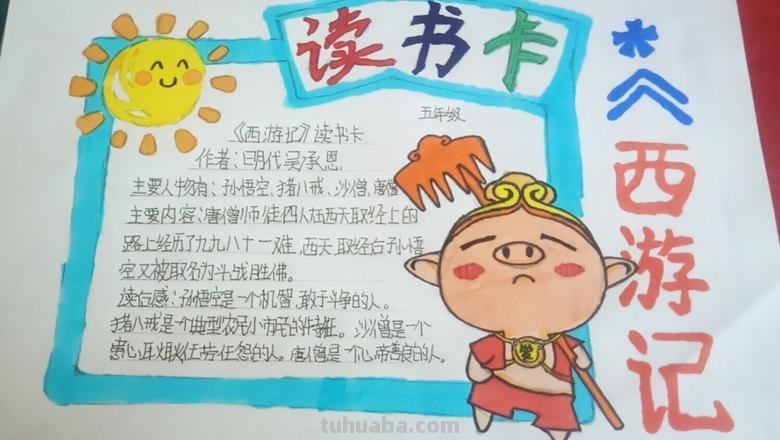 读书卡
五年级
《西游记》读书卡
作者:明代吴承恩
主要人物有:孙悟空、猪八戒、沙僧、唐僧
主要内容:唐僧师徒四人在西天取经上的
路上经历了九九八十一难,西天取经后孙悟
空又被取名为斗战胜佛。
读后感:孙悟空是一个机智、敢于斗争的人。
猪八戒是一个典型农民小市民的。沙僧是一个
忠心耿耿任劳任怨的人。唐僧是一心善良的人。
*《西游记
tuhuaba.com